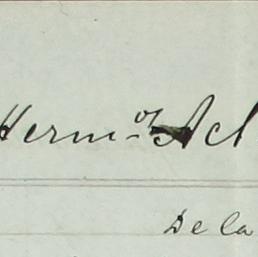 Hermᵒˢ Ach
De la